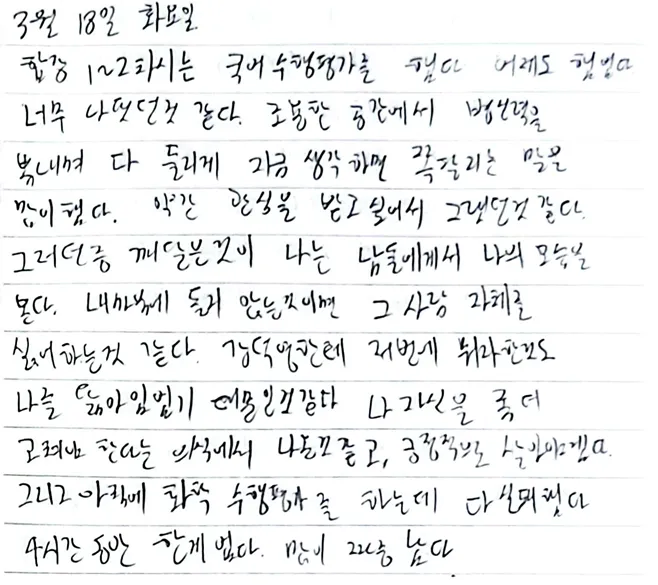 3월 18일 화요일
합강 1~2차시는 국어 수행평가를 했다 어제도 했었다
너무 나댔던것 같다. 조용한 공간에서 
뽐내며 다 들리게 지금 생각하면 쪽팔리는 말을
많이했다. 약간 관심을 받고 싶어서 그랬던것 같다.
그러던중 깨달은것이 나는 남들에게서 나의 모습을
본다. 내마음에 들지 않는것이면 그 사람 자체를
싫어하는것 같다. 한테 저번에 뭐라한것도
나를 때문인것같다 나 자신을 좀 더
한다는 의식에서 긍정적으로 
그리고 아침에 화학 수행평가를 하는데 다 실패했다
4시간 동안 한게 없다. 많이 짜증 났다